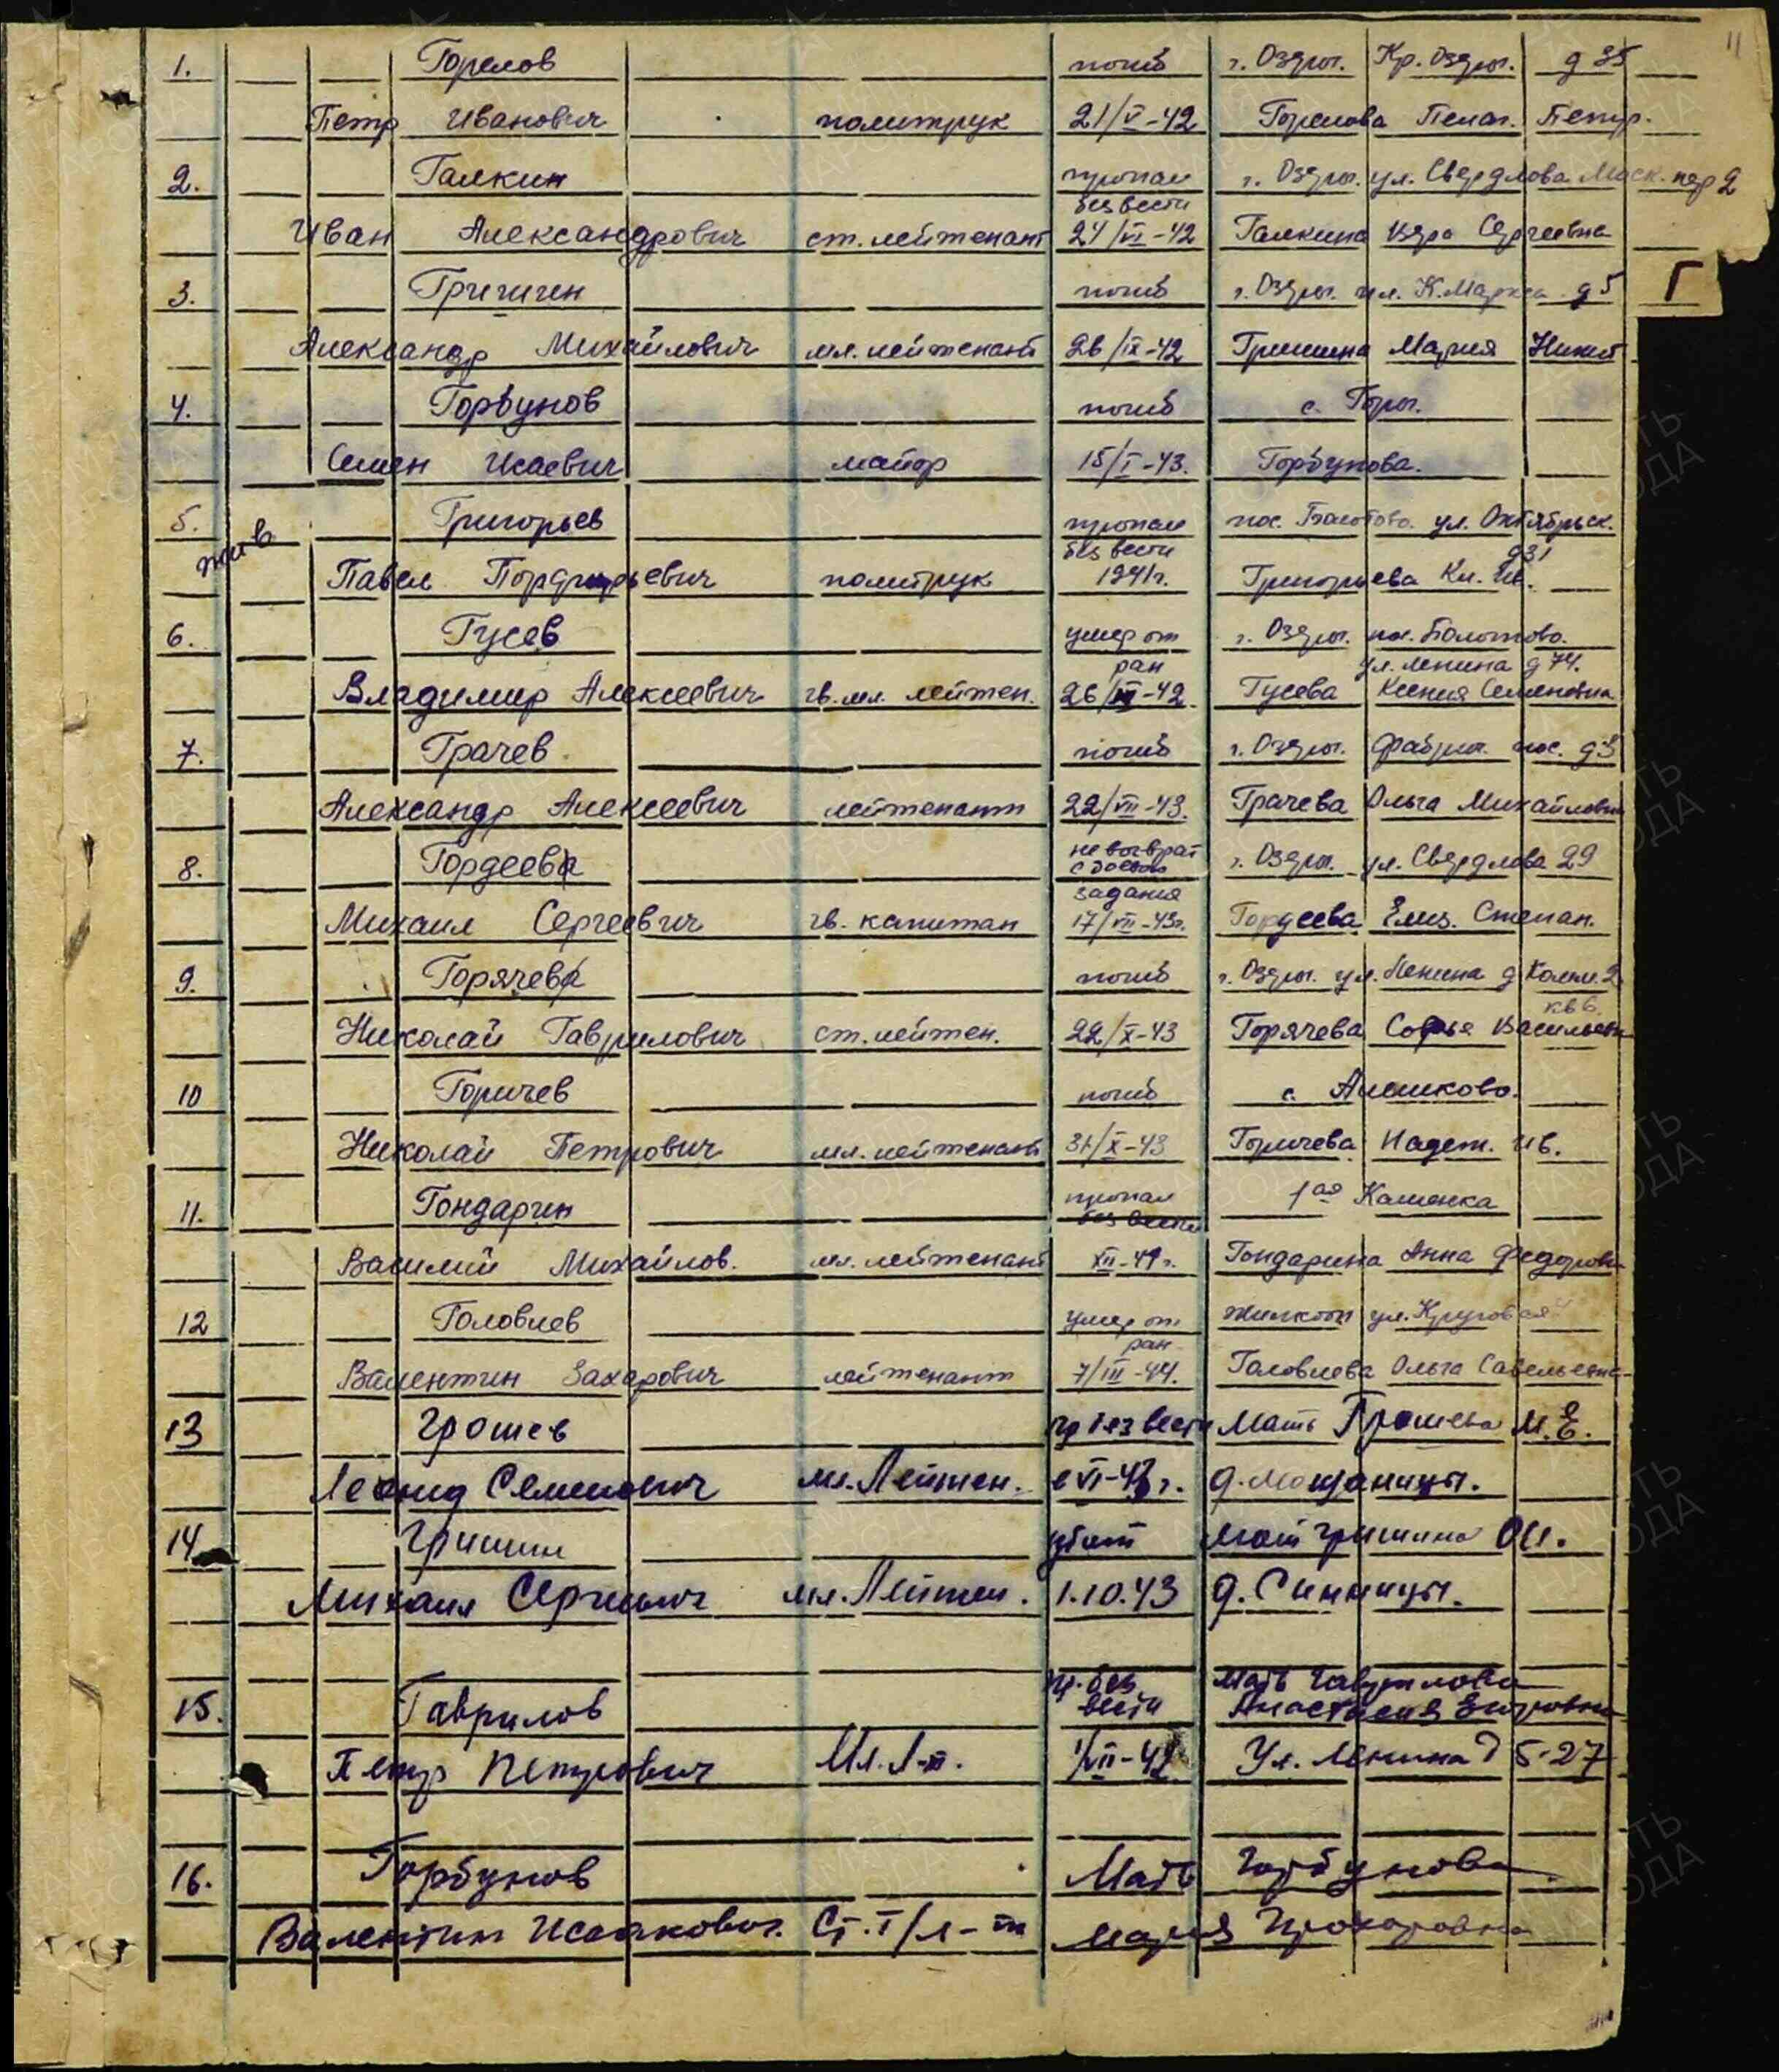 11
1. Горелов погиб г. Озеры. Кр. Озеры. д 35
Петр Иванович политрук 21/V-42 Горелова Пелаг. Петр.
2. Галкин пропал г. Озеры. ул. Свердлова Моск. пер 2
без вести
Иван Александрович ст. лейтенант 24/VI-42 Галкина Вера Сергеевна
Г
3. Гришин погиб г. Озеры. ул. К. Маркса д 5
Александр Михайлович мл. лейтенант 26/IX-42 Гришина Мария Никит
4. Горбунов погиб с. Горы.
Семен Исаевич майор 15/I-43. Горбунова.
5. Григорьев пропал пос. Болотово. ул. Октябрьск.
жив без вести д31
Павел Порфирьевич политрук 1941г. Григорьева Кл. Ив.
6. Гусев умер от г. Озеры. пос. Болотово.
ран ул. Ленина д 74.
Владимир Алексеевич гв. мл. лейтен. 26/ -42. Гусева Ксения Семеновна
7. Грачев погиб г. Озеры. Фабрич. пос. д.3
Александр Алексеевич лейтенант 22/VII-43. Грачева Ольга Михайловна
8. Гордеев не возврат г. Озеры. ул. Свердлова 29
с боевого
задания
Михаил Сергеевич гв. капитан 17/VII-43г. Гордеева Елиз. Степан.
9. Горячев погиб г. Озеры. ул. Ленина д Комм. 2
кв 6.
Николай Гаврилович ст. лейтен. 22/X-43 Горячева Софья Васильевн
10 Горичев погиб с. Алешково.
Николай Петрович мл. лейтенант 31/X-43 Горичева Надеж. Ив.
11. Гондарин пропал 1ая Каменка
без вести
Василий Михайлов. мл. лейтенант XII-41г. Гондарина Анна Федоровн
12 Головлев умер от Жилкоп ул. Круговая
ран
Валентин Захарович лейтенант 7/III-44. Головлева Ольга Савельевна
13 Грошев пр без вести Мать Грошева М. Е.
Леонид Семенович мл. Лейтен. в VI-43г. д. Мощаницы.
14 Гришин убит Мать Гришина О.И.
Михаил Сергеевич мл. Лейтен. 1.10.43 д. Синницы.
пр. без Мать Гаврилова
15. Гаврилов вести Анастасия Егоровна
Петр Петрович Мл. Л-т. 1/VII-42 Ул. Ленина д 5-27
16. Горбунов Мать Горбунова
Валентин Исаакович. Ст. Т/Л-т Мария Прохоровна